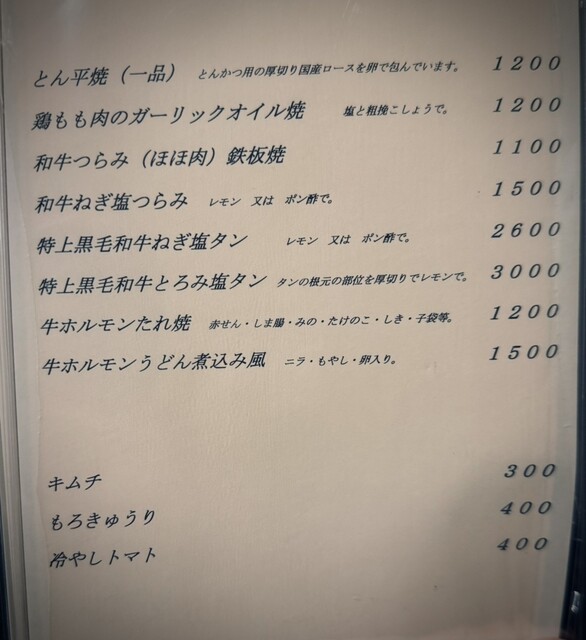 とん平焼（一品） とんかつ用の厚切り国産ロースを卵で包んでいます。 １２００
鶏もも肉のガーリックオイル焼 塩と粗挽こしょうで。 １２００
和牛つらみ（ほほ肉）鉄板焼 １１００
和牛ねぎ塩つらみ レモン 又は ポン酢で。 １５００
特上黒毛和牛ねぎ塩タン レモン 又は ポン酢で。 ２６００
特上黒毛和牛とろみ塩タン タンの根元の部位を厚切りでレモンで。 ３０００
牛ホルモンたれ焼 赤せん・しま腸・みの・たけのこ・しき・子袋等。 １２００
牛ホルモンうどん煮込み風 ニラ・もやし・卵入り。 １５００
キムチ ３００
もろきゅうり ４００
冷やしトマト ４００